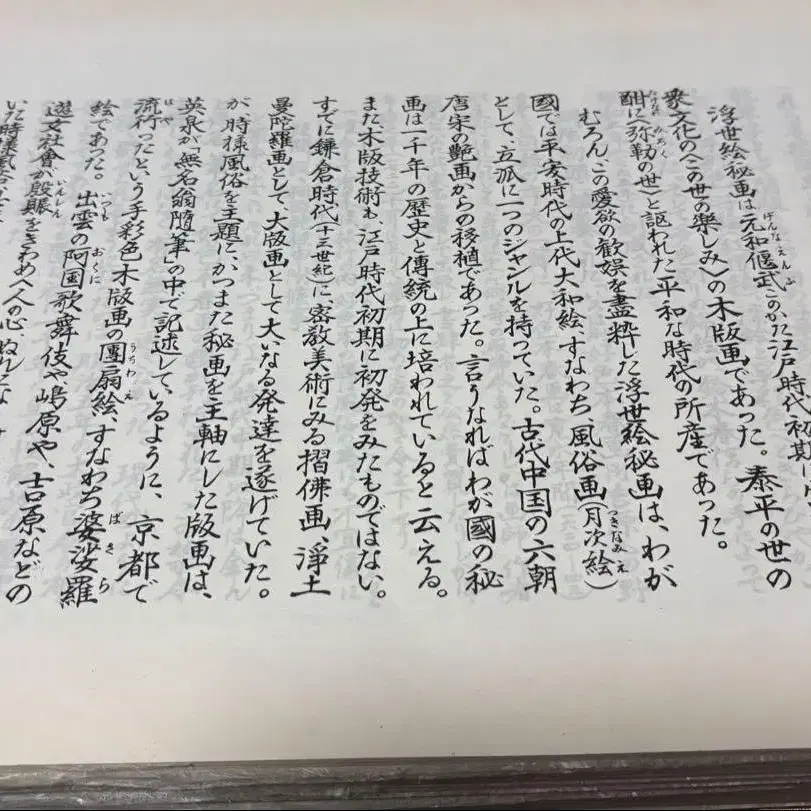 浮世絵秘画は元和偃武このかた江戸時代初期に
衆文化の〈この世の楽しみ〉の木版画であった。泰平の世の
酣に〈弥勒の世〉と謳われた平和な時代の所産であった。
むろん、この愛欲の歓娯を盡粋した浮世絵秘画は、わが
國では平安時代の上代大和絵、すなわち、風俗画(月次絵)
として、立派に一つのジャンルを持っていた。古代中国の六朝
唐宋の艶画からの移植であった。言うなればわが國の秘
画は一千年の歴史と傳統の上に培われていると云える。
また、木版技術も、江戸時代初期に初発をみたものではない。
すでに鎌倉時代(十三世紀)に密教美術にみる摺佛画、淨土
曼陀羅画として、大版画として大いなる発達を遂げていた。
が時様風俗を主題に、かつまた秘画を主軸にした版画は、
英泉が「無名翁隨筆」の中で記述しているように、京都で
流行ったという手彩色木版画の團扇絵、すなわち婆娑羅
絵であった。出雲の阿国歌舞伎や嶋原や、吉原などの
遊女社會が殷賑をきわめ〈人の心
いた時様風俗